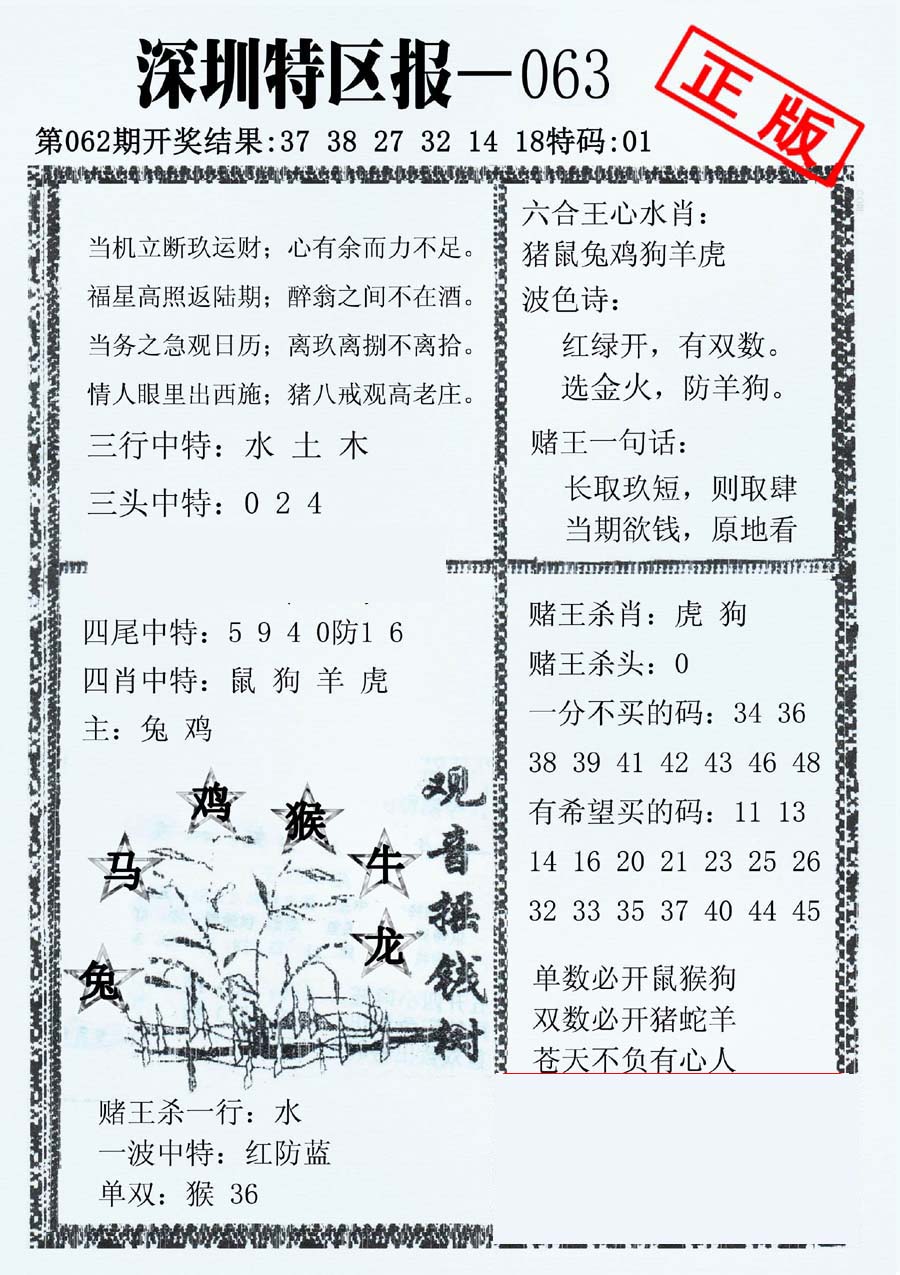 深圳特区报—063
正版
第062期开奖结果:37 38 27 32 14 18特码:01
当机立断玖运财；心有余而力不足。
福星高照返陆期；醉翁之间不在酒。
当务之急观日历；离玖离捌不离拾。
情人眼里出西施；猪八戒观高老庄。
三行中特：水 土 木
三头中特：0 2 4
六合王心水肖：
猪鼠兔鸡狗羊虎
波色诗：
红绿开，有双数。
选金火，防羊狗。
赌王一句话：
长取玖短，则取肆
当期欲钱，原地看
四尾中特：5 9 4 0防1 6
四肖中特：鼠 狗 羊 虎
主：兔 鸡
鸡
猴
马
牛
龙
兔
观音摇钱树
赌王杀一行：水
一波中特：红防蓝
单双：猴 36
赌王杀肖：虎 狗
赌王杀头：0
一分不买的码：34 36
38 39 41 42 43 46 48
有希望买的码：11 13
14 16 20 21 23 25 26
32 33 35 37 40 44 45
单数必开鼠猴狗
双数必开猪蛇羊
苍天不负有心人